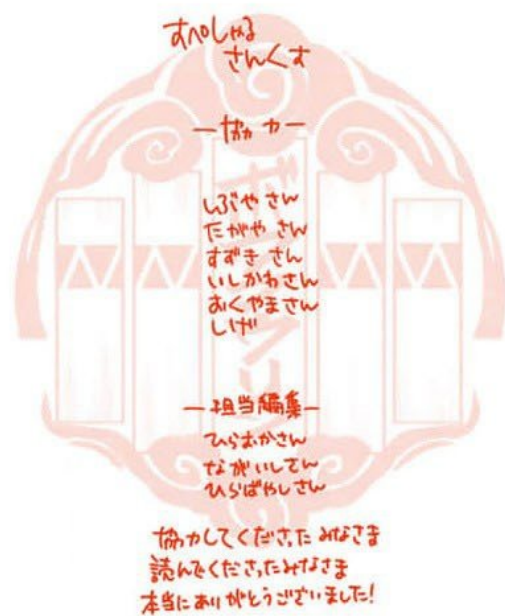 すぺしゃる
さんくす
ー協力ー
しぶや さん
たがや さん
すずき さん
いしかわさん
おくやまさん
しげ
ー担当編集ー
ひらおかさん
ながいしさん
ひらばやしさん
協力してくださったみなさま
読んでくださったみなさま
本当にありがとうございました!